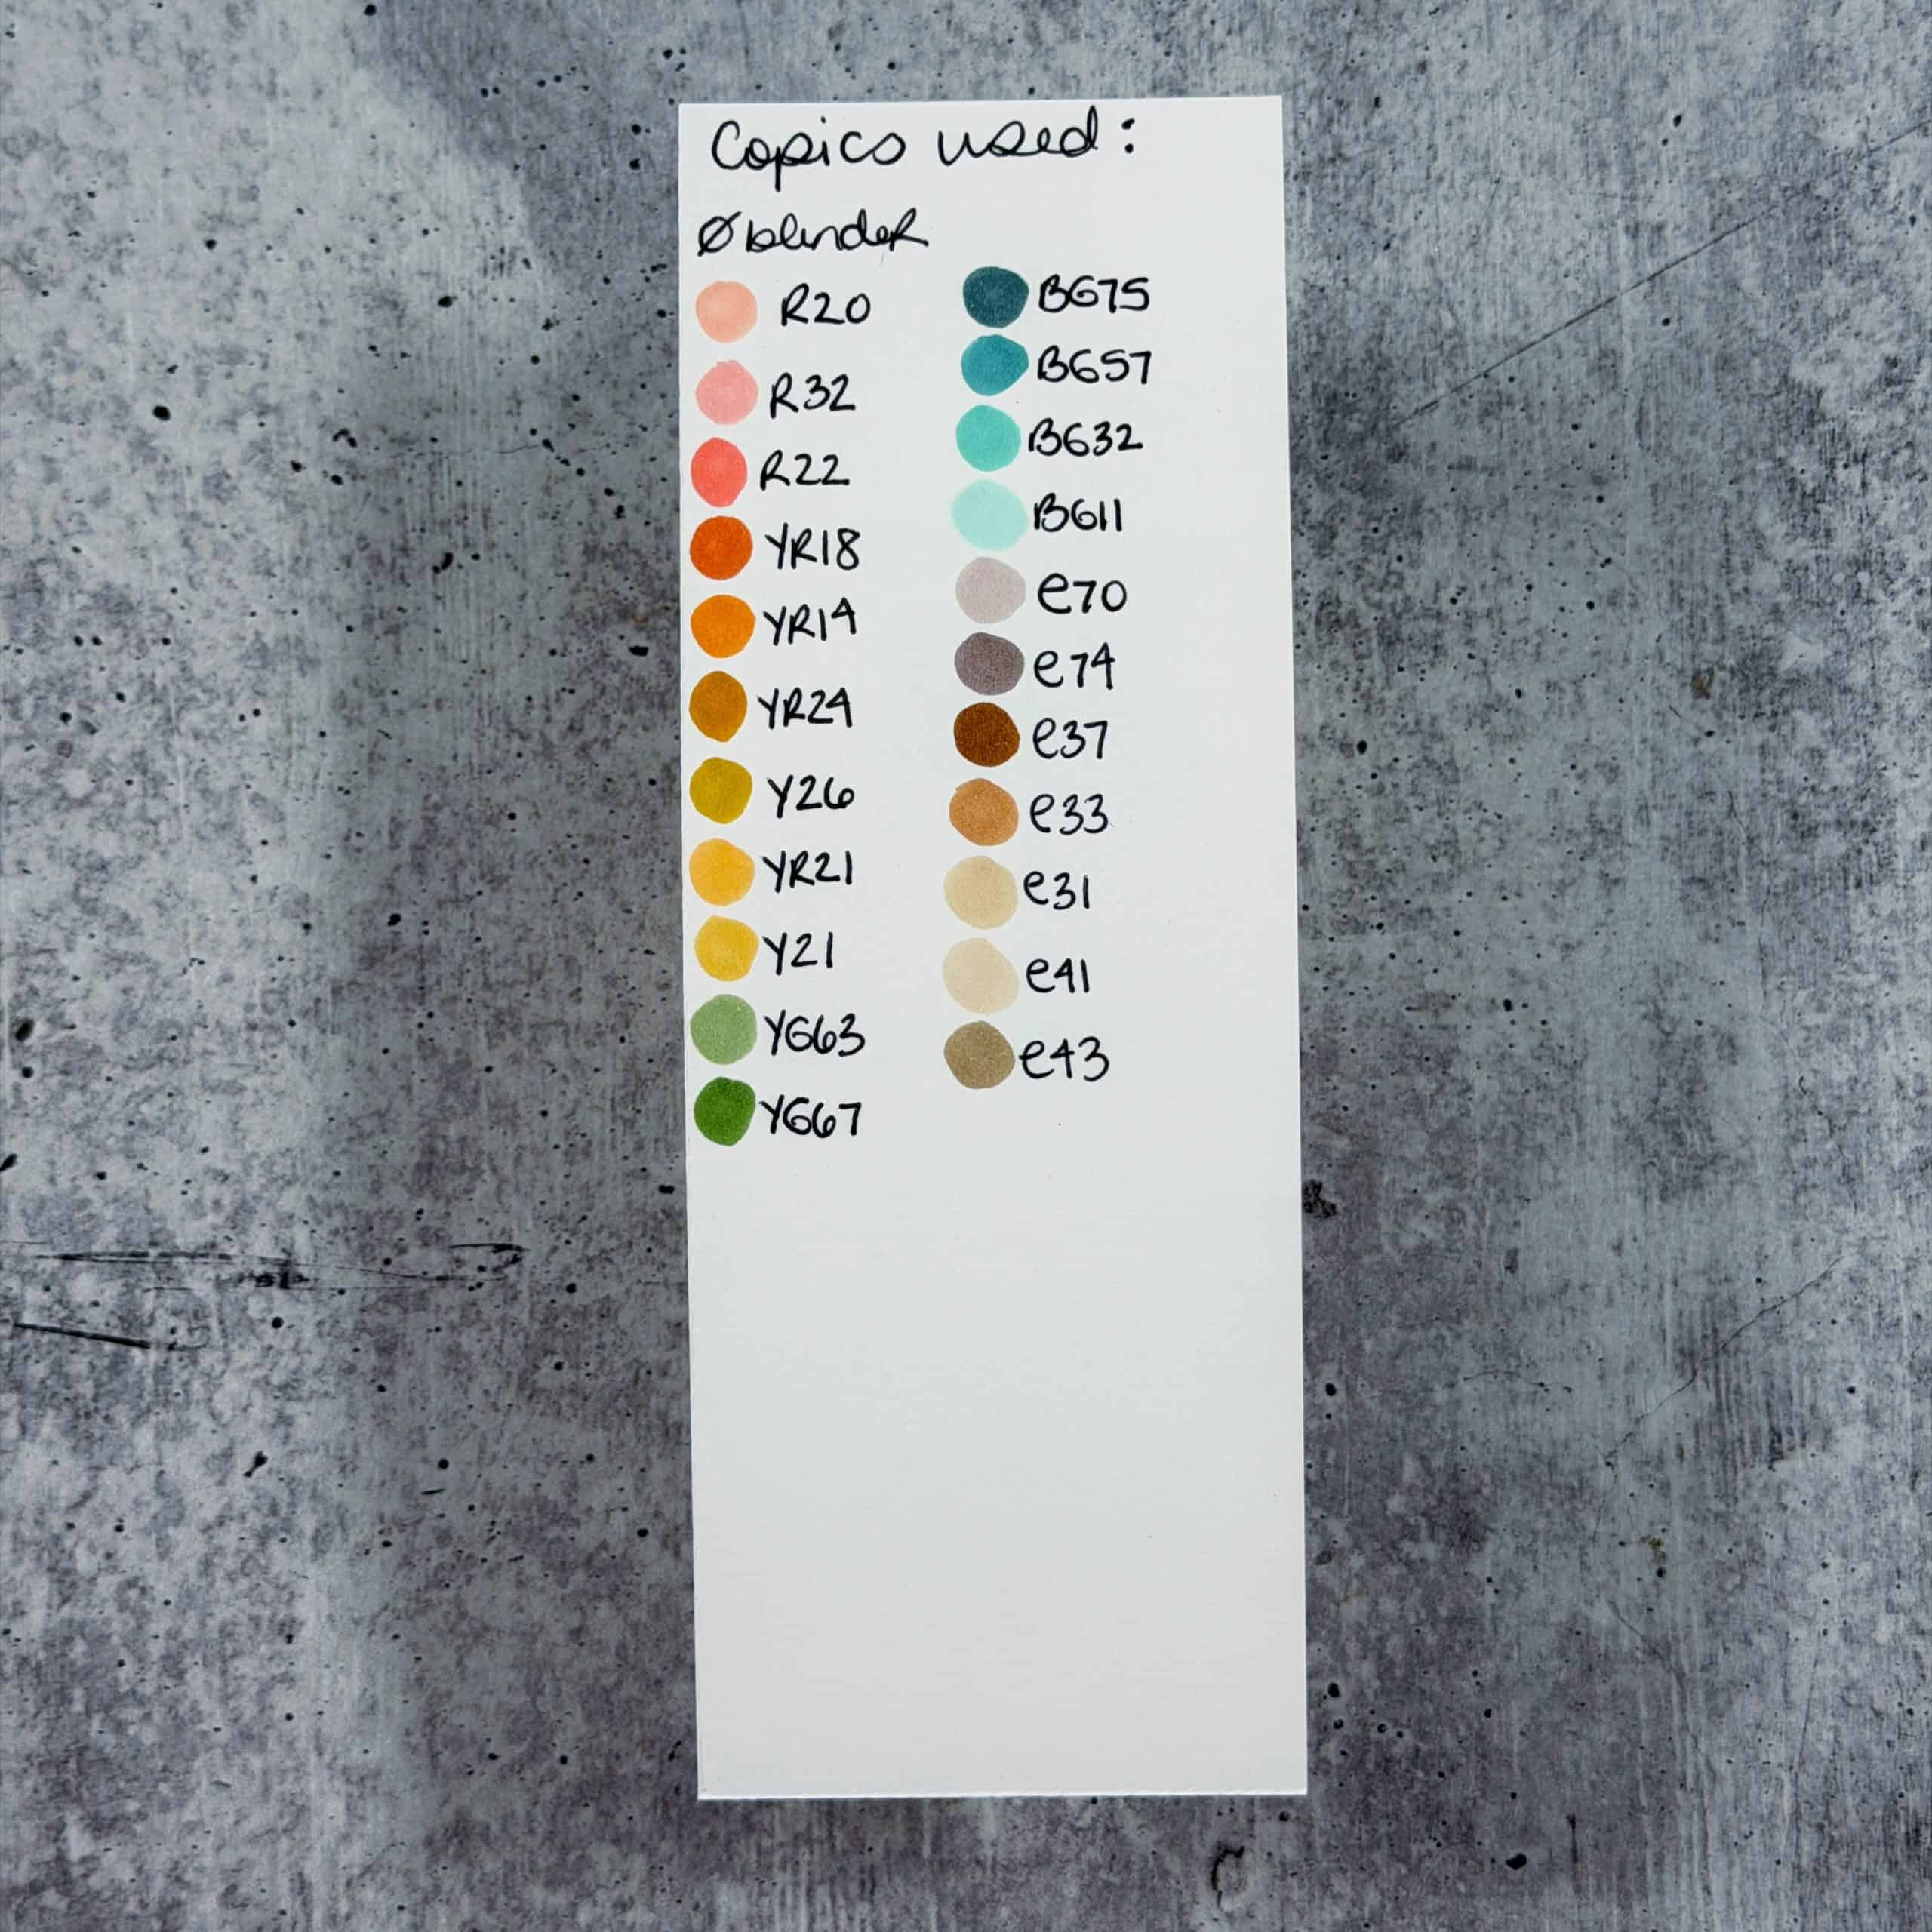 Copics used:
Øblender
R20
R32
R22
YR18
YR14
YR24
Y26
YR21
Y21
YG63
YG67
BG75
BG57
BG32
BG11
e70
e74
e37
e33
e31
e41
e43